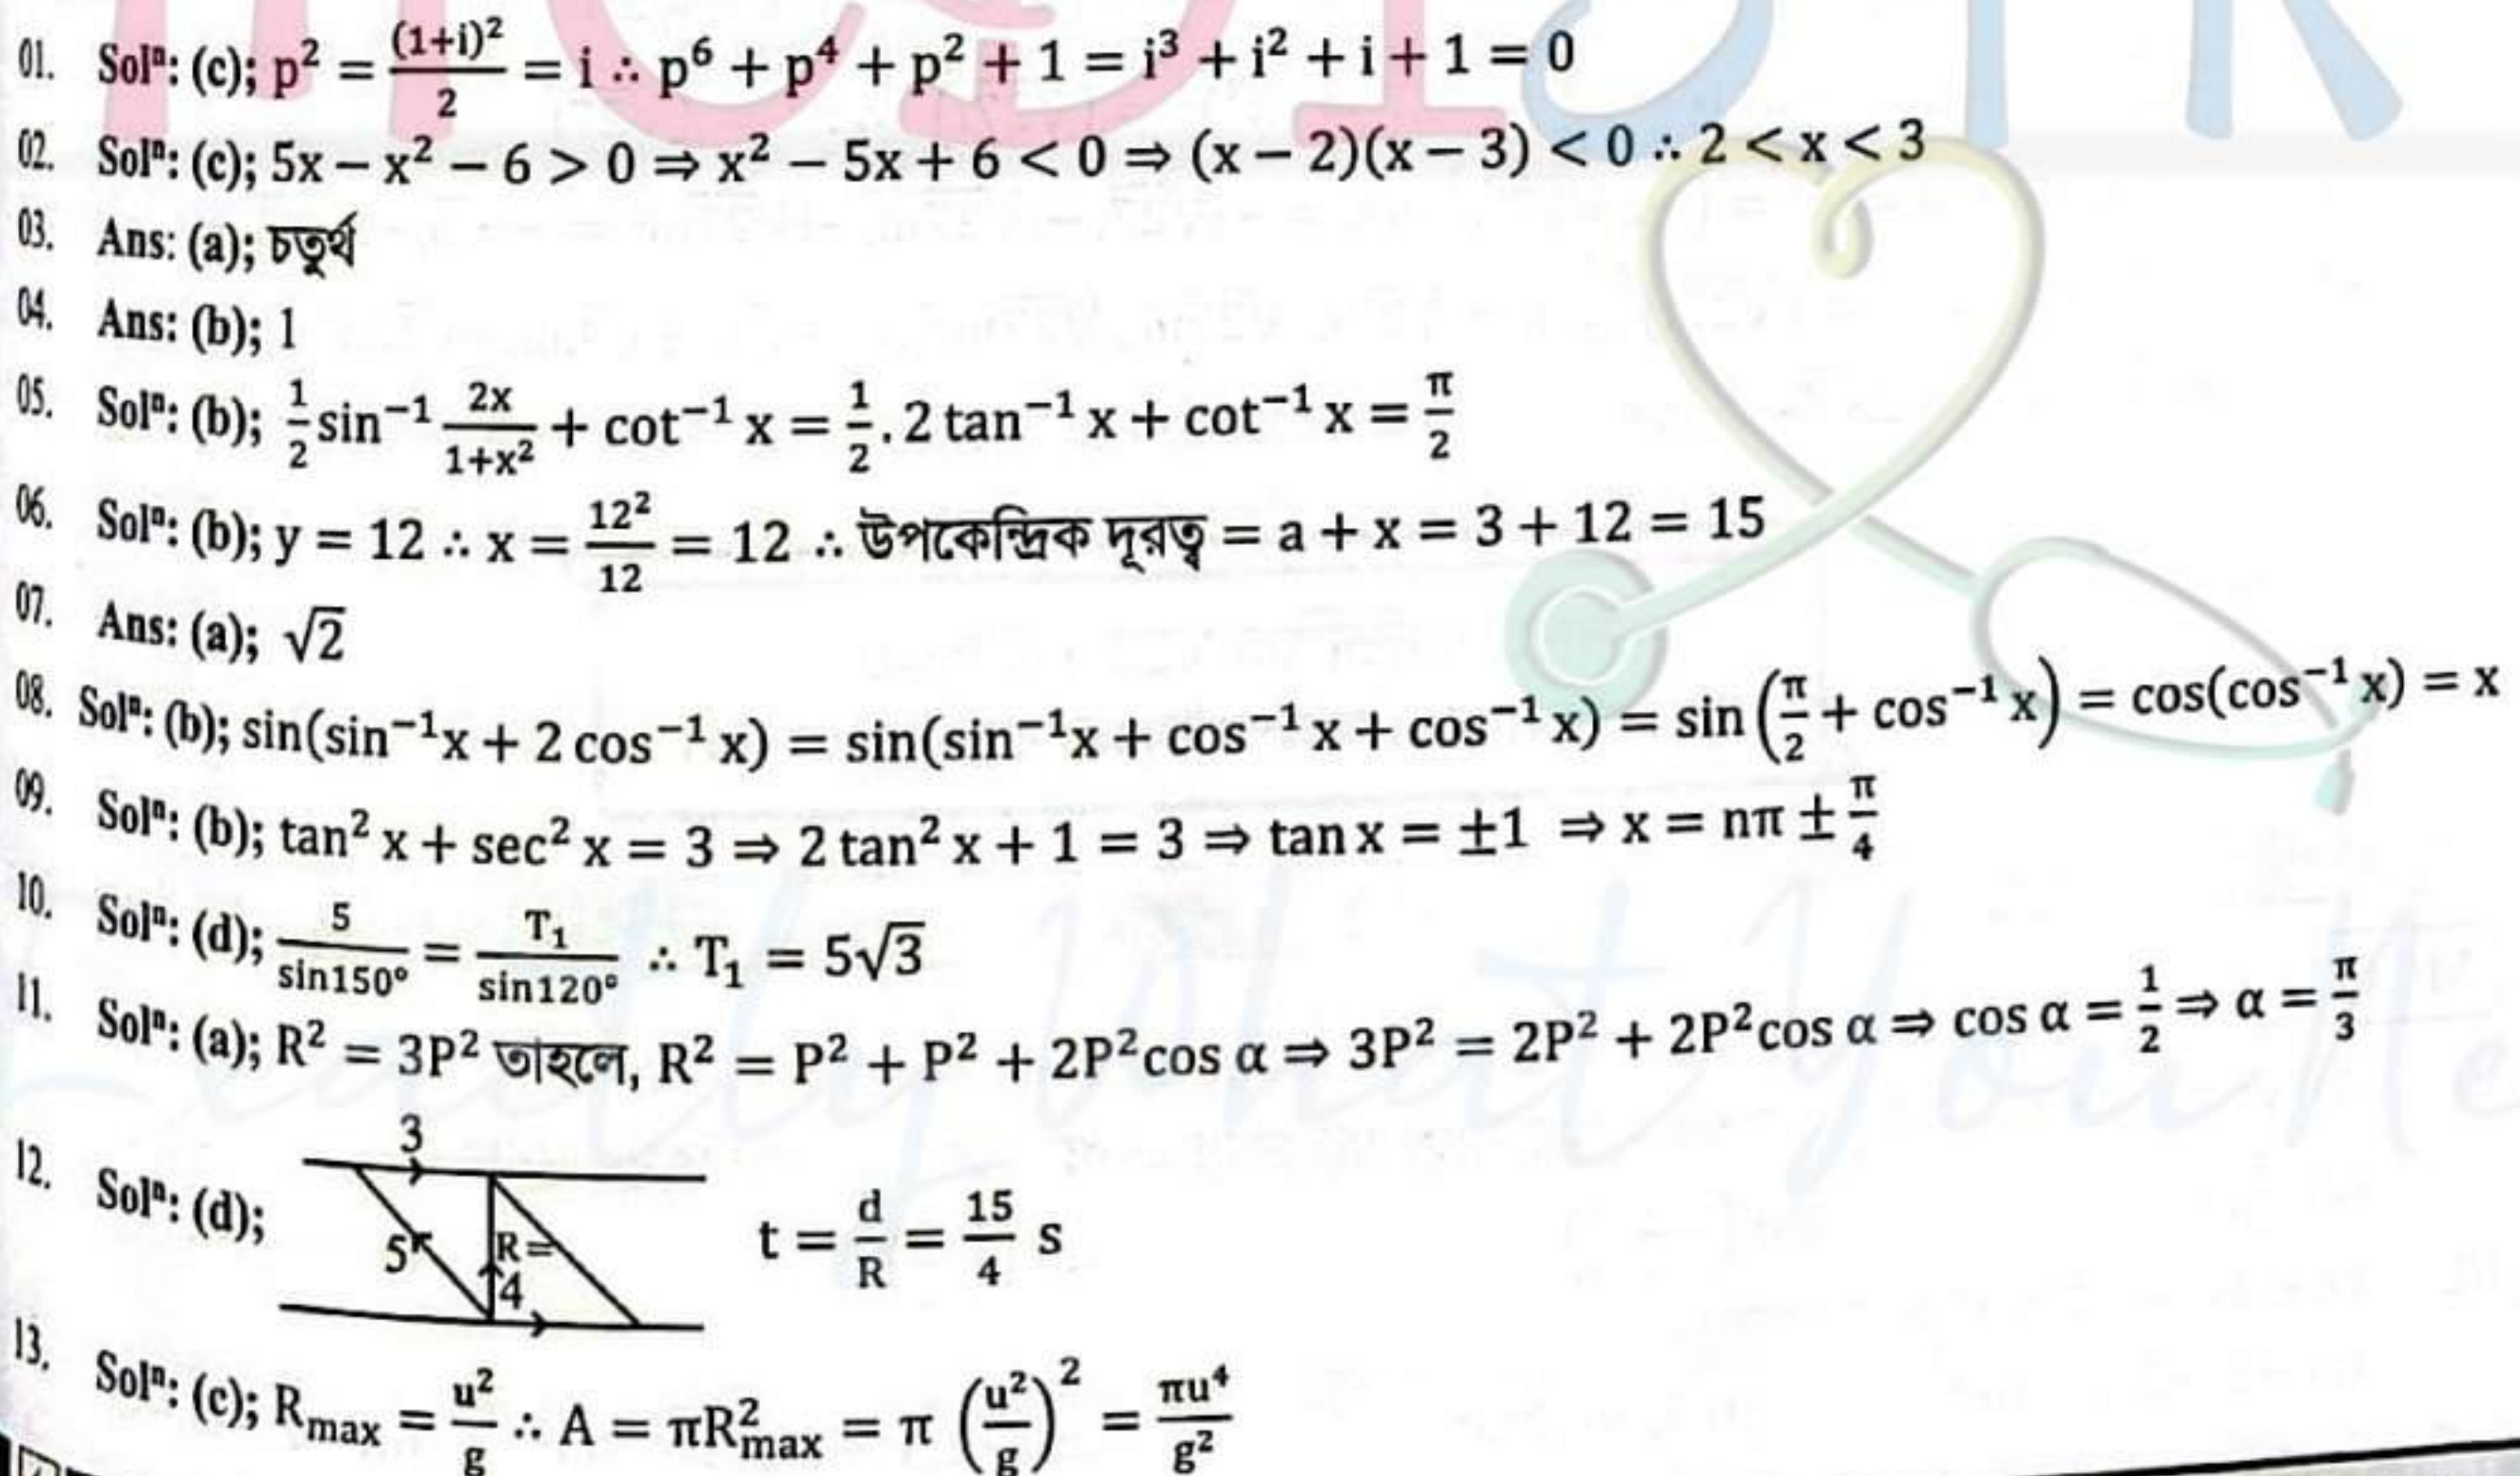 01. Solⁿ: (c); p² = (1+i)²/2 = i ∴ p⁶ + p⁴ + p² + 1 = i³ + i² + i + 1 = 0
02. Solⁿ: (c); 5x − x² − 6 > 0 ⇒ x² − 5x + 6 < 0 ⇒ (x − 2)(x − 3) < 0 ∴ 2 < x < 3
03. Ans: (a); চতুর্থ
04. Ans: (b); 1
05. Solⁿ: (b); 1/2 sin⁻¹ 2x/(1+x²) + cot⁻¹ x = 1/2 . 2 tan⁻¹ x + cot⁻¹ x = π/2
06. Solⁿ: (b); y = 12 ∴ x = 12²/12 = 12 ∴ উপকেন্দ্রিক দূরত্ব = a + x = 3 + 12 = 15
07. Ans: (a); √2
08. Solⁿ: (b); sin(sin⁻¹x + 2 cos⁻¹ x) = sin(sin⁻¹x + cos⁻¹ x + cos⁻¹ x) = sin (π/2 + cos⁻¹ x) = cos(cos⁻¹ x) = x
09. Solⁿ: (b); tan² x + sec² x = 3 ⇒ 2 tan² x + 1 = 3 ⇒ tan x = ±1 ⇒ x = nπ ± π/4
10. Solⁿ: (d); 5/sin150° = T₁/sin120° ∴ T₁ = 5√3
11. Solⁿ: (a); R² = 3P² তাহলে, R² = P² + P² + 2P²cos α ⇒ 3P² = 2P² + 2P²cos α ⇒ cos α = 1/2 ⇒ α = π/3
12. Solⁿ: (d); 3 5 R= 4 t = d/R = 15/4 s
13. Solⁿ: (c); Rₘₐₓ = u²/g ∴ A = πR²ₘₐₓ = π (u²/g)² = πu⁴/g²